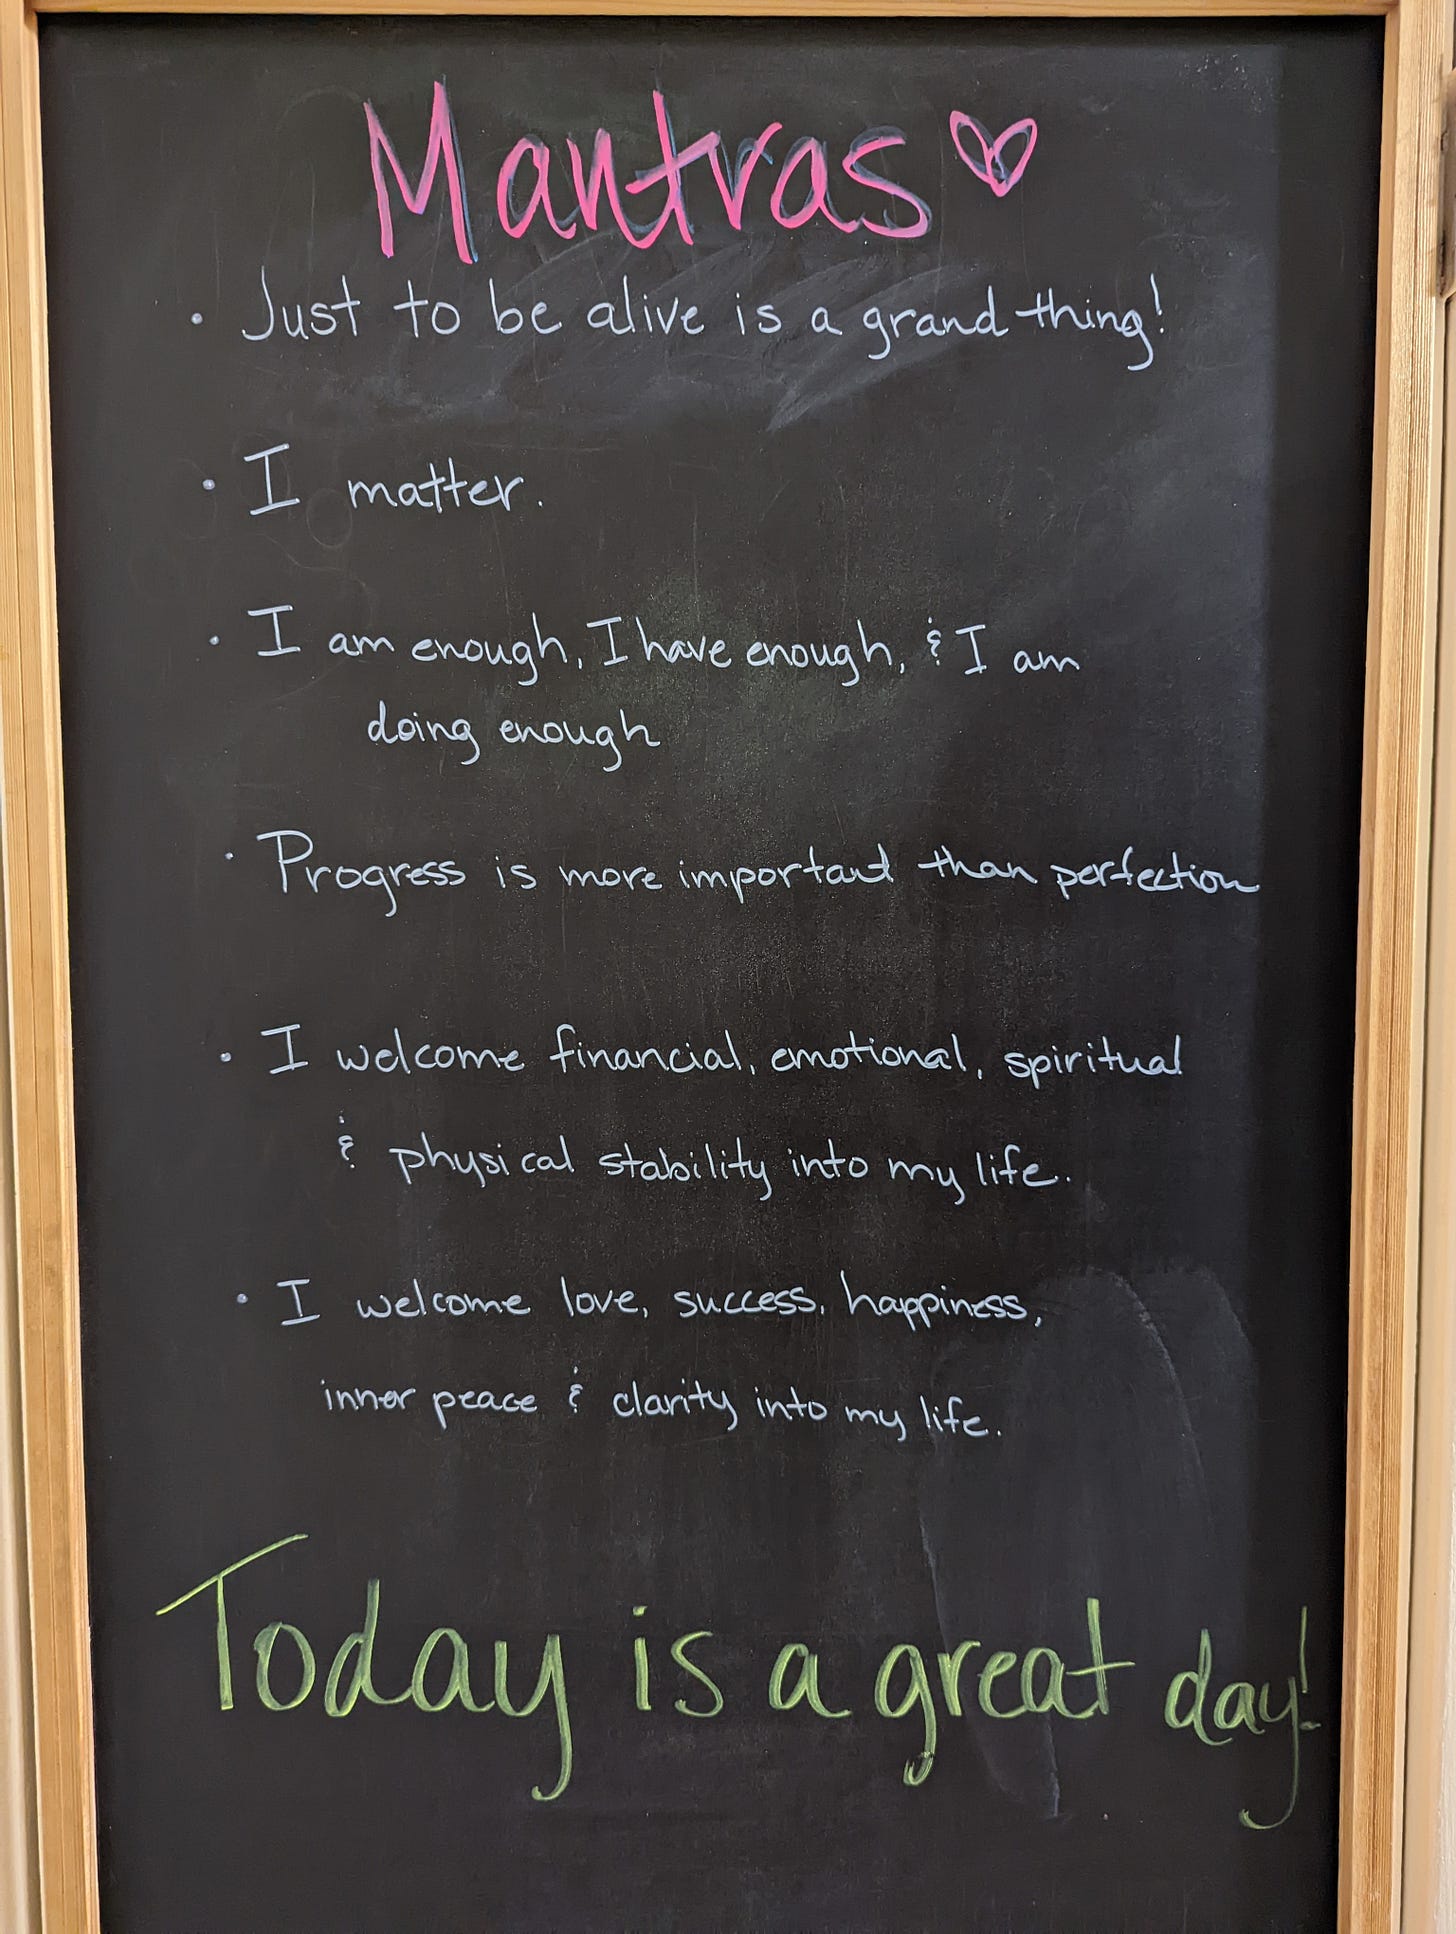 Mantras
• Just to be alive is a grand thing!
• I matter.
• I am enough, I have enough, & I am
doing enough
• Progress is more important than perfection
• I welcome financial, emotional, spiritual
& physical stability into my life.
• I welcome love, success, happiness,
inner peace & clarity into my life.
Today is a great day!